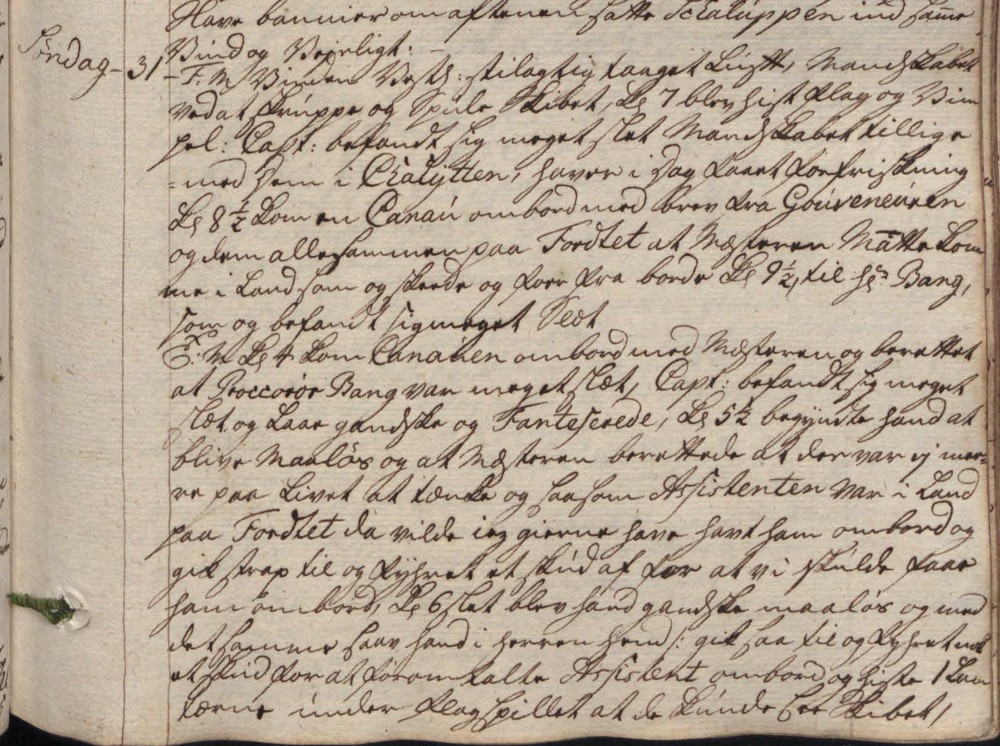 Have bannier om aftenen satte Schaluppen ind samme
Vind og Veirligt. –
Søndag – 31 – F: M Vinden Vestl: stilagtig taaget Luftt, Mandskabet
ved at skruppe og Spule Skibet, Kl 7 blev hist Flag og Vim
pel: Capt: befandt sig meget slet Mandskabet tillige
= med ham i Chalytten, haver i Dag faaet forfriskning
Kl 8 ½ Kom en Canau ombord med brev fra Gouverneuren
og dem allesammen paa Fordtet at Mæsteren Matte kom
me i Land som og skeede og foer fra borde Kl 9 ½, til Hr Bang,
som og befandt sig meget Slet
E: M Kl 4 Kom Canauen ombord med Mæsteren og berettet
at Proccorør Bang var meget slæt, Capt: befandt sig meget
slæt og laae gandske og Fanteserede, Kl 5 ½ begyndte hand at
blive Maaløs og at Mæsteren berettede at der var ej mee=
re paa Livet at tænke og saasom Assistenten var i Land
paa Fordtet da vilde ieg gierne have havt ham ombord og
gik strax til og fyhret et skud af for at vi skulde faae
ham ombord, Kl 6 slet blev hand gandske maaløs og med
det samme saav hand i Herren hend /: gik saa til og fyhret nok
et skud for at faae omtalte Assistent ombord og histe 1 Lan
tærne under Flagspillet at de kunde see Skibet /